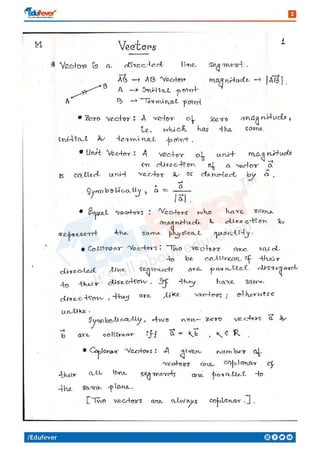 Edufever
2
M Vectors 1
* Vector is a directed line segment.
A B
AB → AB Vector magnitude → |AB|.
A → Initial point
B → Terminal point
• Zero vector : A vector of zero magnitude,
i.e. which has the same
initial & terminal point.
• Unit Vector : A vector of unit magnitude
in direction of a vector a
is called unit vector & is denoted by â.
Symbolically, â = a / |a|
• Equal vectors : Vectors who have same
magnitude & direction &
represent the same physical quantity.
• Collinear Vectors : Two vectors are said
to be collinear if their
directed line segments are parallel disregards
to their direction. If they have same
direction, they are like vectors; otherwise
unlike.
Symbolically, two non-zero vectors a &
b are collinear iff a = K b , K ∈ R
• Coplanar Vectors : A given number of
vectors are coplanar if
their all line segments are parallel to
the same plane.
[Two vectors are always coplanar.].
/Edufever